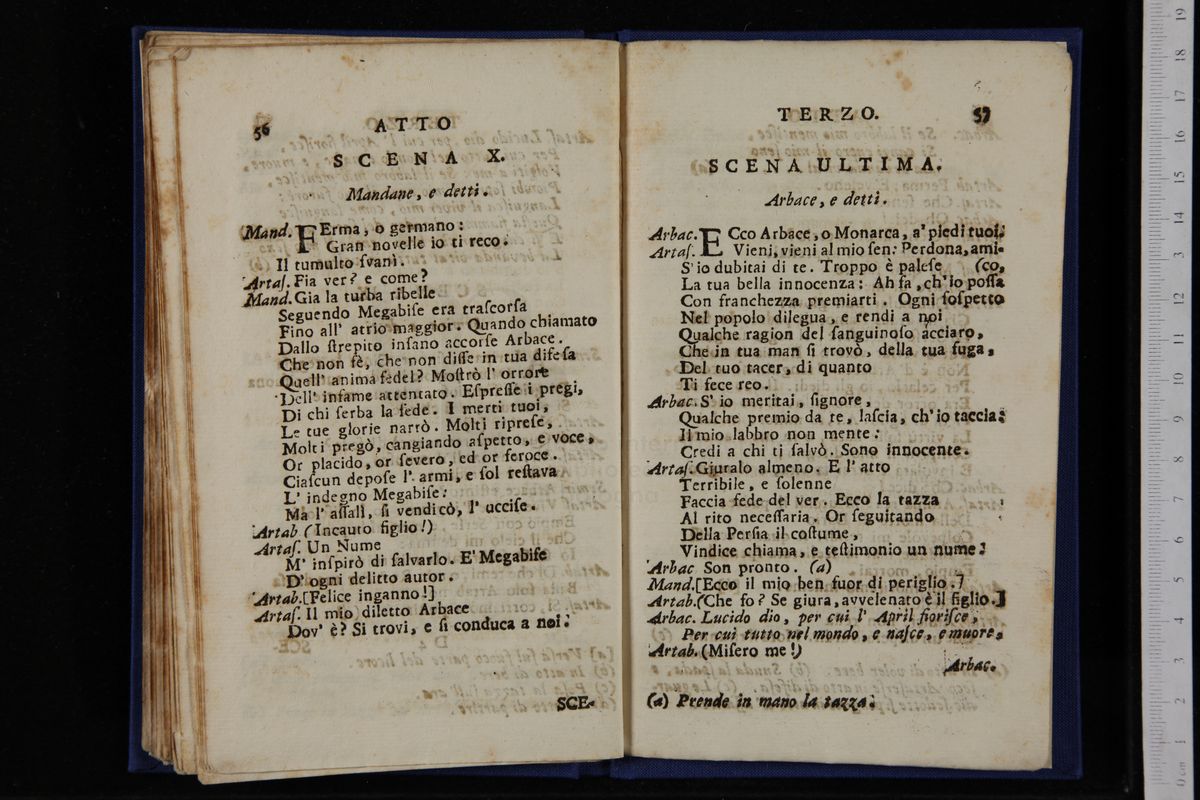 56
ATTO
SCENA X.
Mandane, e detti.
Mand. FErma, o germano:
Gran novelle io ti reco.
Il tumulto ſvanì.
Artaſ. Fia ver? e come?
Mand. Gia la turba ribelle
Seguendo Megabiſe era traſcorſa
Fino all' atrio maggior. Quando chiamato
Dallo ſtrepito inſano accorſe Arbace.
Che non fè, che non diſſe in tua difeſa
Quell' anima fedel? Moſtrò l' orrore
Dell' infame attentato. Eſpreſſe i pregi,
Di chi ſerba la fede. I merti tuoi,
Le tue glorie narrò. Molti ripreſe,
Molti pregò, cangiando aſpetto, e voce,
Or placido, or ſevero, ed or feroce.
Ciaſcun depoſe l' armi, e ſol reſtava
L' indegno Megabiſe:
Ma l' aſſalì, ſi vendicò, l' ucciſe.
Artab (Incauto figlio!)
Artaſ. Un Nume
M' inſpirò di ſalvarlo. E' Megabiſe
D' ogni delitto autor.
Artab. [Felice inganno!]
Artaſ. Il mio diletto Arbace
Dov' è? Si trovi, e ſi conduca a noi.
SCE-
TERZO.
57
SCENA ULTIMA.
Arbace, e detti.
Arbac. ECco Arbace, o Monarca, a' piedi tuoi.
Artaſ. Vieni, vieni al mio ſen: Perdona, ami-
S'io dubitai di te. Troppo è paleſe (co,
La tua bella innocenza: Ah fa, ch'io poſſa
Con franchezza premiarti. Ogni ſoſpetto
Nel popolo dilegua, e rendi a noi
Qualche ragion del ſanguinoſo acciaro,
Che in tua man ſi trovò, della tua fuga,
Del tuo tacer, di quanto
Ti fece reo.
Arbac. S' io meritai, ſignore,
Qualche premio da te, laſcia, ch'io taccia:
Il mio labbro non mente:
Credi a chi ti ſalvò. Sono innocente.
Artaſ. Giuralo almeno. E l' atto
Terribile, e ſolenne
Faccia fede del ver. Ecco la tazza
Al rito neceſſaria. Or ſeguitando
Della Perſia il coſtume,
Vindice chiama, e teſtimonio un nume.
Arbac Son pronto. (a)
Mand. [Ecco il mio ben fuor di periglio.]
Artab. (Che fo? Se giura, avvelenato è il figlio.]
Arbac. Lucido dio, per cui l' April fioriſce,
Per cui tutto nel mondo, e naſce, e muore,
Artab. (Miſero me!)
Arbac.
(a) Prende in mano la tazza.
0 cm 1 2 3 4 5 6 7 8 9 10 11 12 13 14 15 16 17 18 19